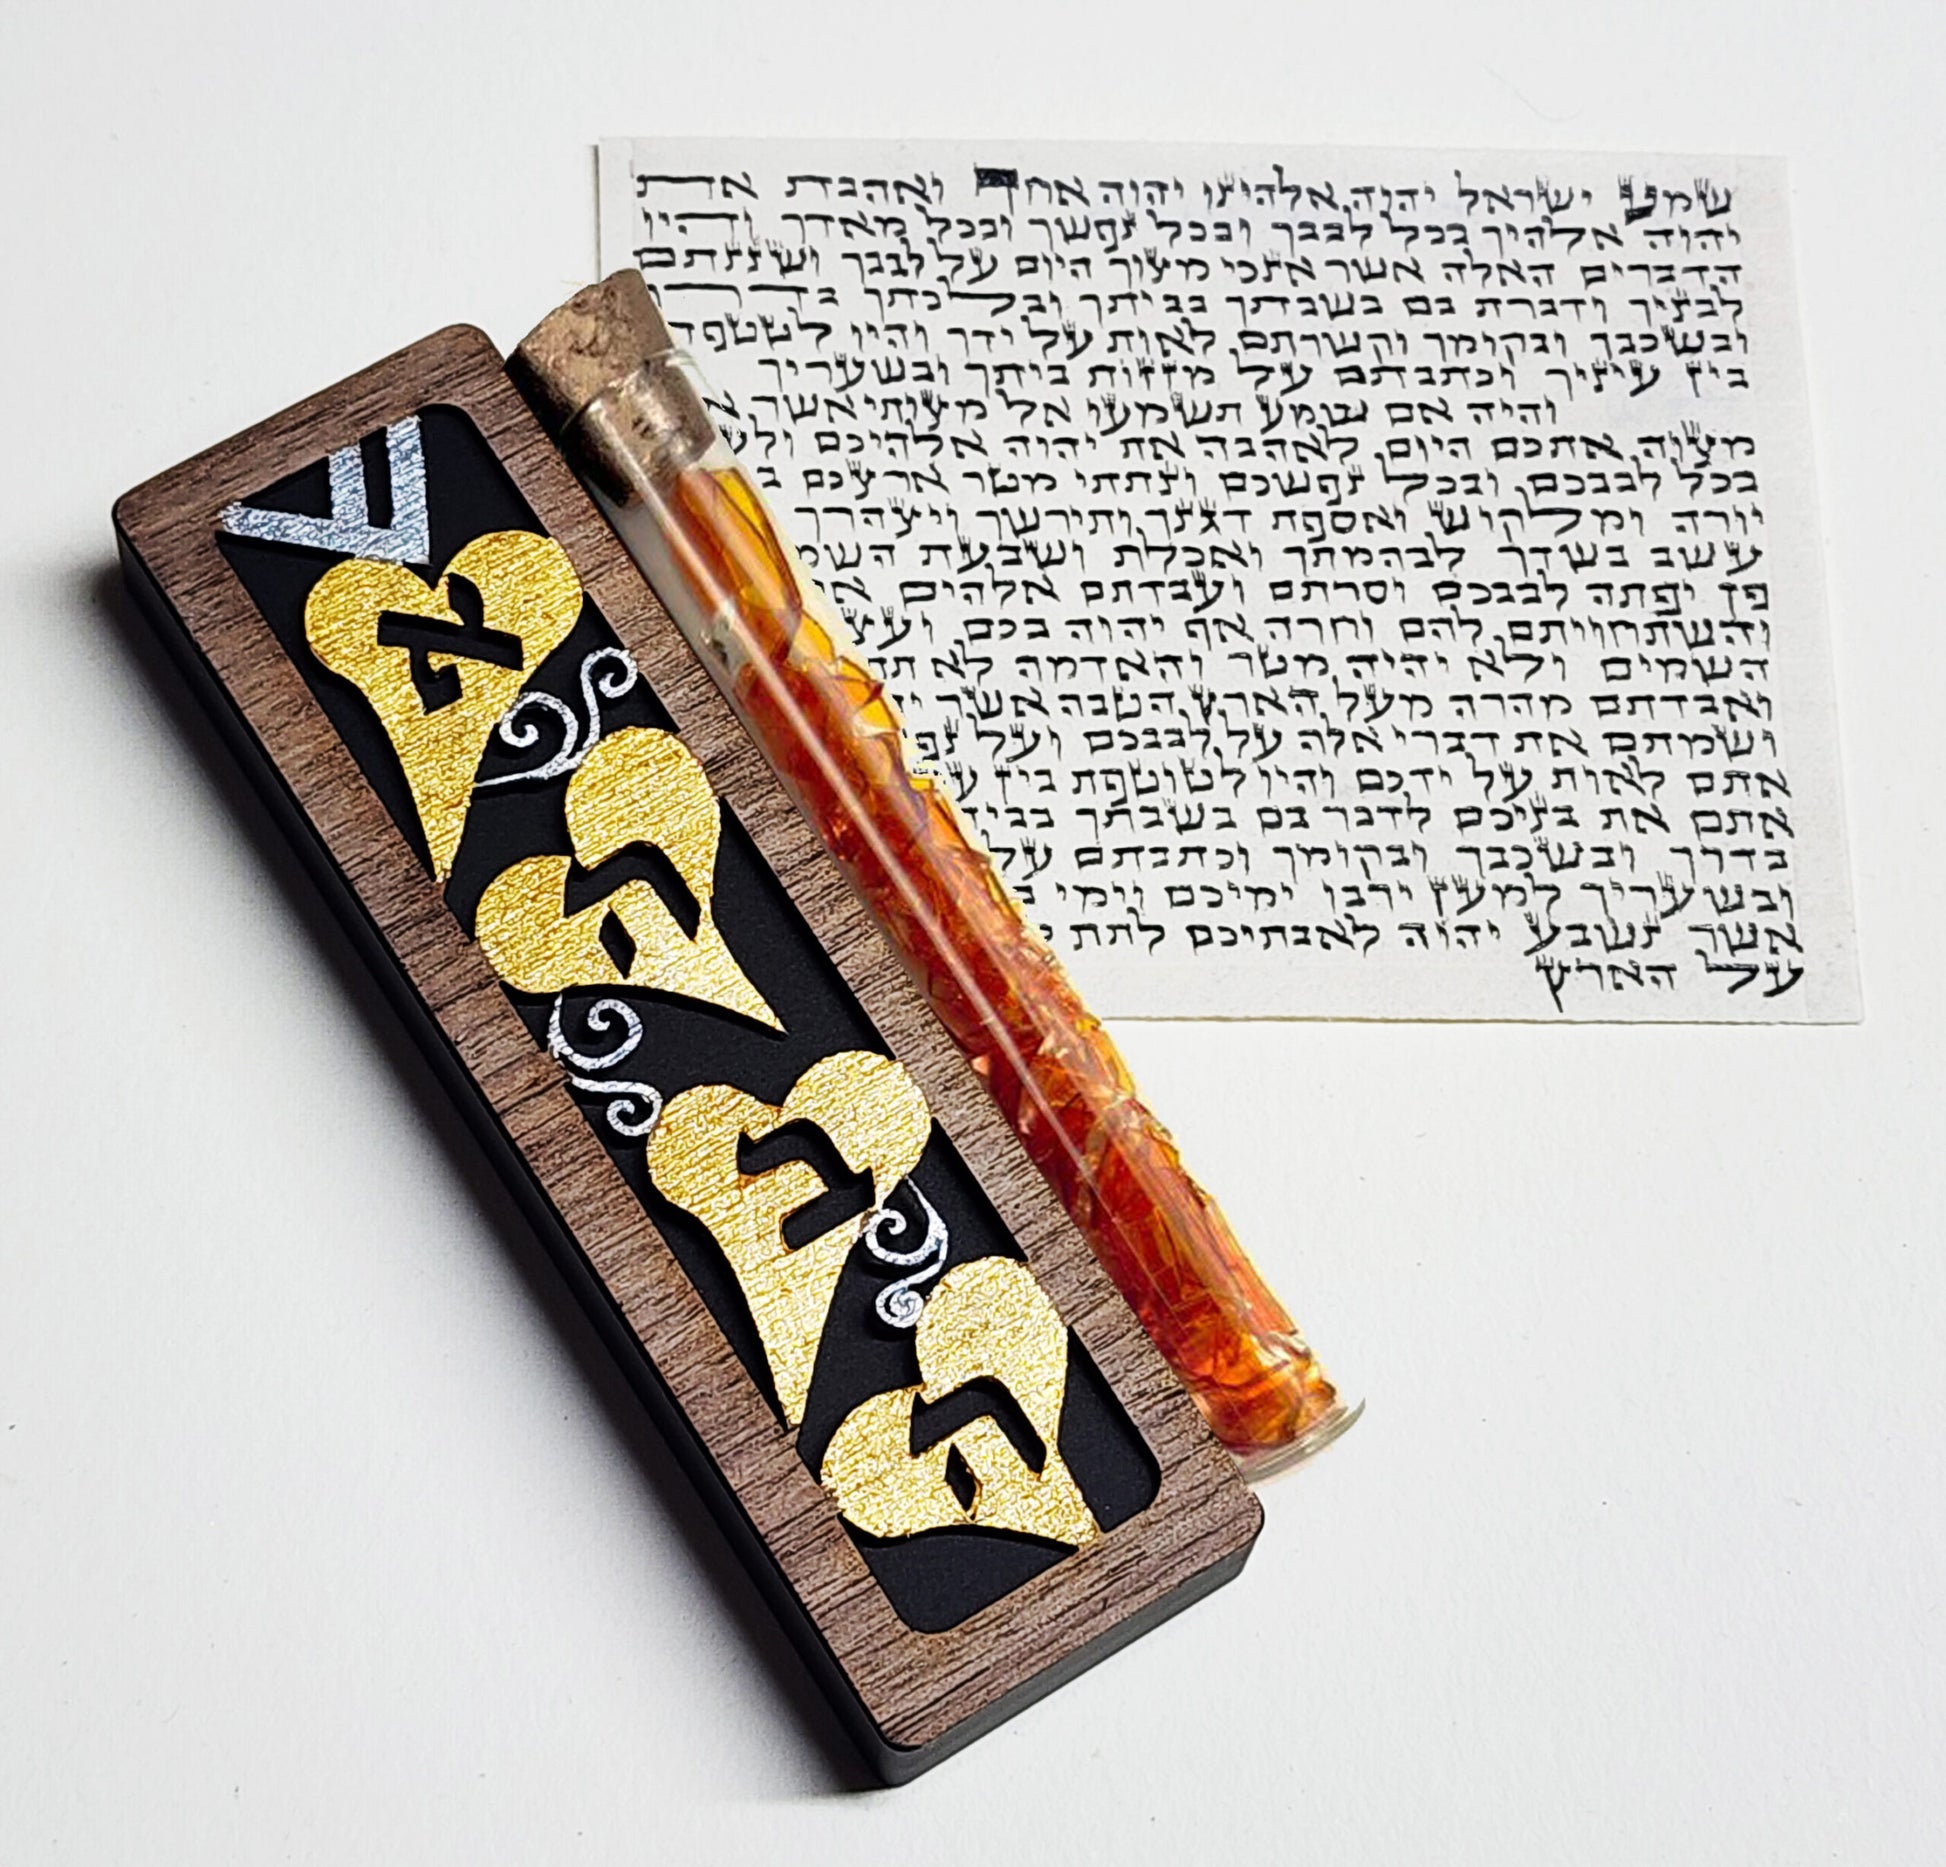 שמע ישראל יהוה אלהינו יהוה אחד ואהבת את
יהוה אלהיך בכל לבבך ובכל נפשך ובכל מאדך והיו
הדברים האלה אשר אנכי מצוך היום על לבבך ושננתם
לבניך ודברת בם בשבתך בביתך ובלכתך בדרך
ובשכבך ובקומך וקשרתם לאות על ידך והיו
בין עיניך וכתבתם על מזזות ביתך ובשעריך
והיה אם שמע תשמעו אל מצותי אשר
מצוה אתכם היום לאהבה את יהוה אלהיכם
בכל לבבכם ובכל נפשכם ונתתי מטר ארצכם
יורה ומלקוש ואספת דגנך ותירשך ויצהרך
עשב בשדך לבהמתך ואכלת ושבעת
פן יפתה לבבכם וסרתם ועבדתם אלהים
והשתחויתם להם וחרה אף יהוה בכם
השמים ולא יהיה מטר והאדמה לא
ואבדתם מהרה מעל הארץ הטבה אשר
ושמתם את דברי אלה על לבבכם ועל
אתם לאות על ידכם והיו לטוטפת בין
אתם את בניכם לדבר בם בשבתך
בדרך ובשכבך ובקומך וכתבתם על
ובשעריך למען ירבו ימיכם וימי
אשר נשבע יהוה לאבתיכם לתת
על הארץ
ש
א
ה
ב
ה